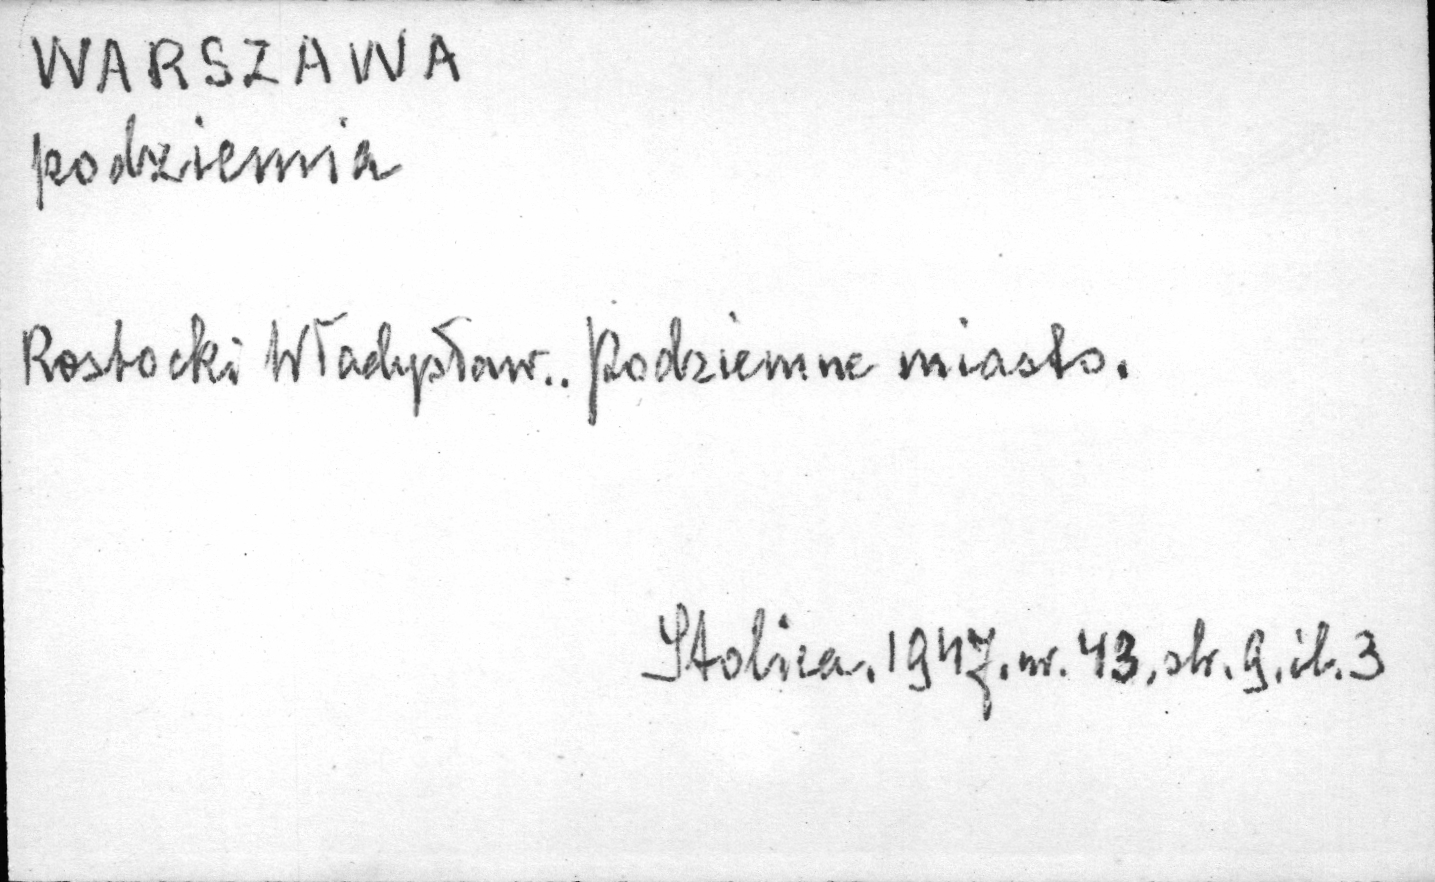 WARSZAWA
podziemia
Rostocki Władysław.. Podziemne miasto.
Stolica. 1947. nr. 43, str. 9. il. 3